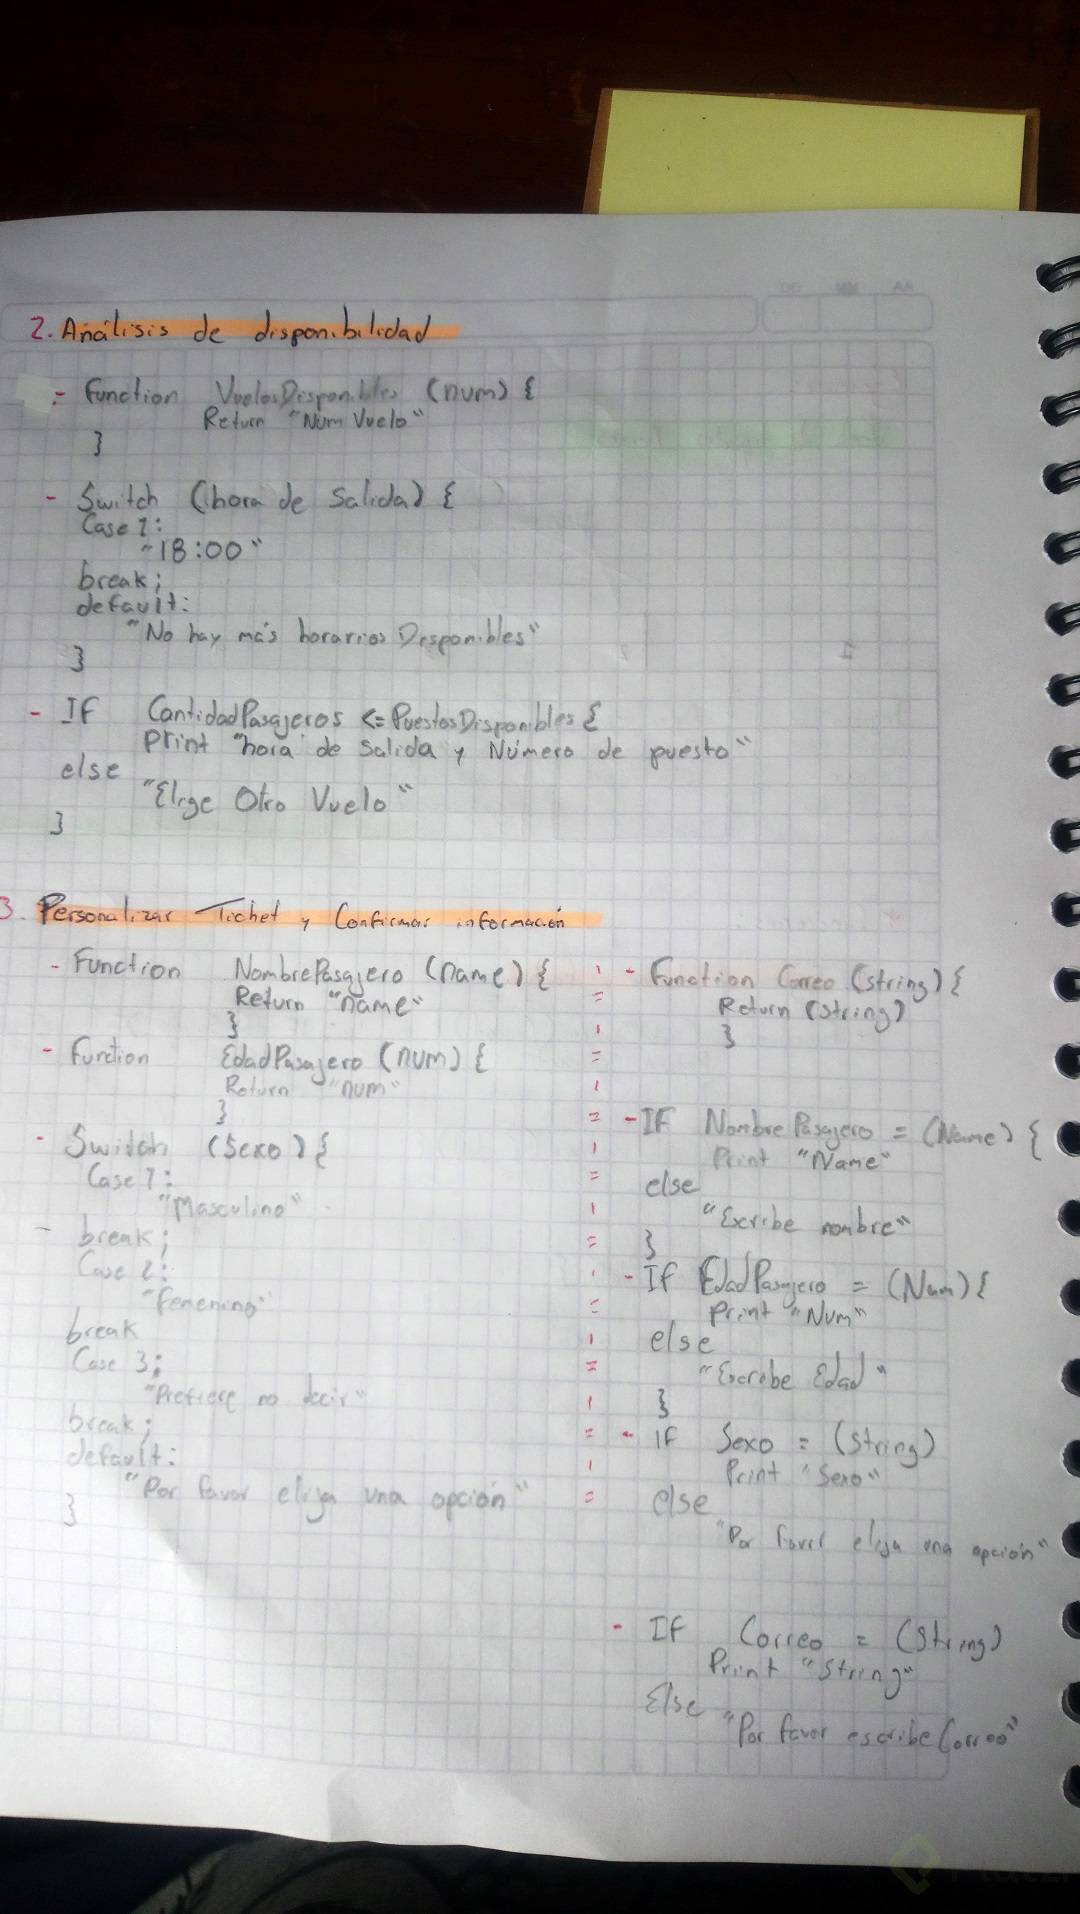 2. Análisis de disponibilidad
- Function VuelosDisponibles (num) {
Return "Num Vuelo"
}
- Switch (hora de Salida) {
Case 1:
"18:00"
break;
default:
"No hay más horarios Desponibles"
}
- IF CantidadPasajeros <= PuestosDisponibles {
Print "hora de Salida y Número de puesto"
else
"Elige Otro Vuelo"
}
3. Personalizar Ticket y Confirmar información
- Function NombrePasajero (name) {
Return "name"
}
- Function EdadPasajero (num) {
Return "num"
}
- Switch (Sexo) {
Case 1:
"Masculino"
- break;
Case 2:
"Femenino"
break
Case 3:
"Prefiere no decir"
break;
default:
"Por favor elija una opción"
}
- Function Correo (string) {
Return (string)
}
- IF NombrePasajero = (Name) {
Print "Name"
else
"Escribe nombre"
}
- If EdadPasajero = (Num) {
Print "Num"
else
"Escribe Edad"
}
- IF Sexo = (String)
Print "Sexo"
else
"Por favor elija una opción"
- IF Correo = (String)
Print "String"
Else
"Por favor escribe Correo"